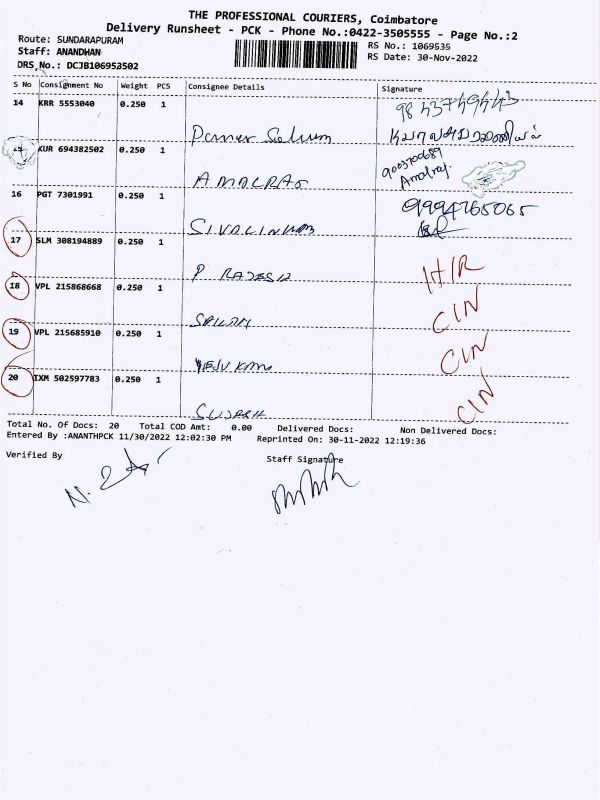 THE PROFESSIONAL COURIERS, Coimbatore
Delivery Runsheet - PCK - Phone No.:0422-3505555 - Page No.:2
Route: SUNDARAPURAM
RS No.: 1069535
Staff: ANANDHAN
RS Date: 30-Nov-2022
DRS,No.: DCJB106953502
S No Consignment No Weight PCS Consignee Details Signature
14 KRR 5553040 0.250 1
9843749443
15 KUR 694382502 0.250 1
9003700689
Amalraj
AMALRAJ
16 PGT 7301991 0.250 1
9994765065
SIVALINGAM
17 SLM 308194889 0.250 1
P RAJESH
18 VPL 215868668 0.250 1
CIN
19 VPL 215685910 0.250 1
CIN
20 IXM 502597783 0.250 1
CIN
Total No. Of Docs: 20 Total COD Amt: 0.00 Delivered Docs: Non Delivered Docs:
Entered By :ANANTHPCK 11/30/2022 12:02:30 PM Reprinted On: 30-11-2022 12:19:36
Verified By Staff Signature